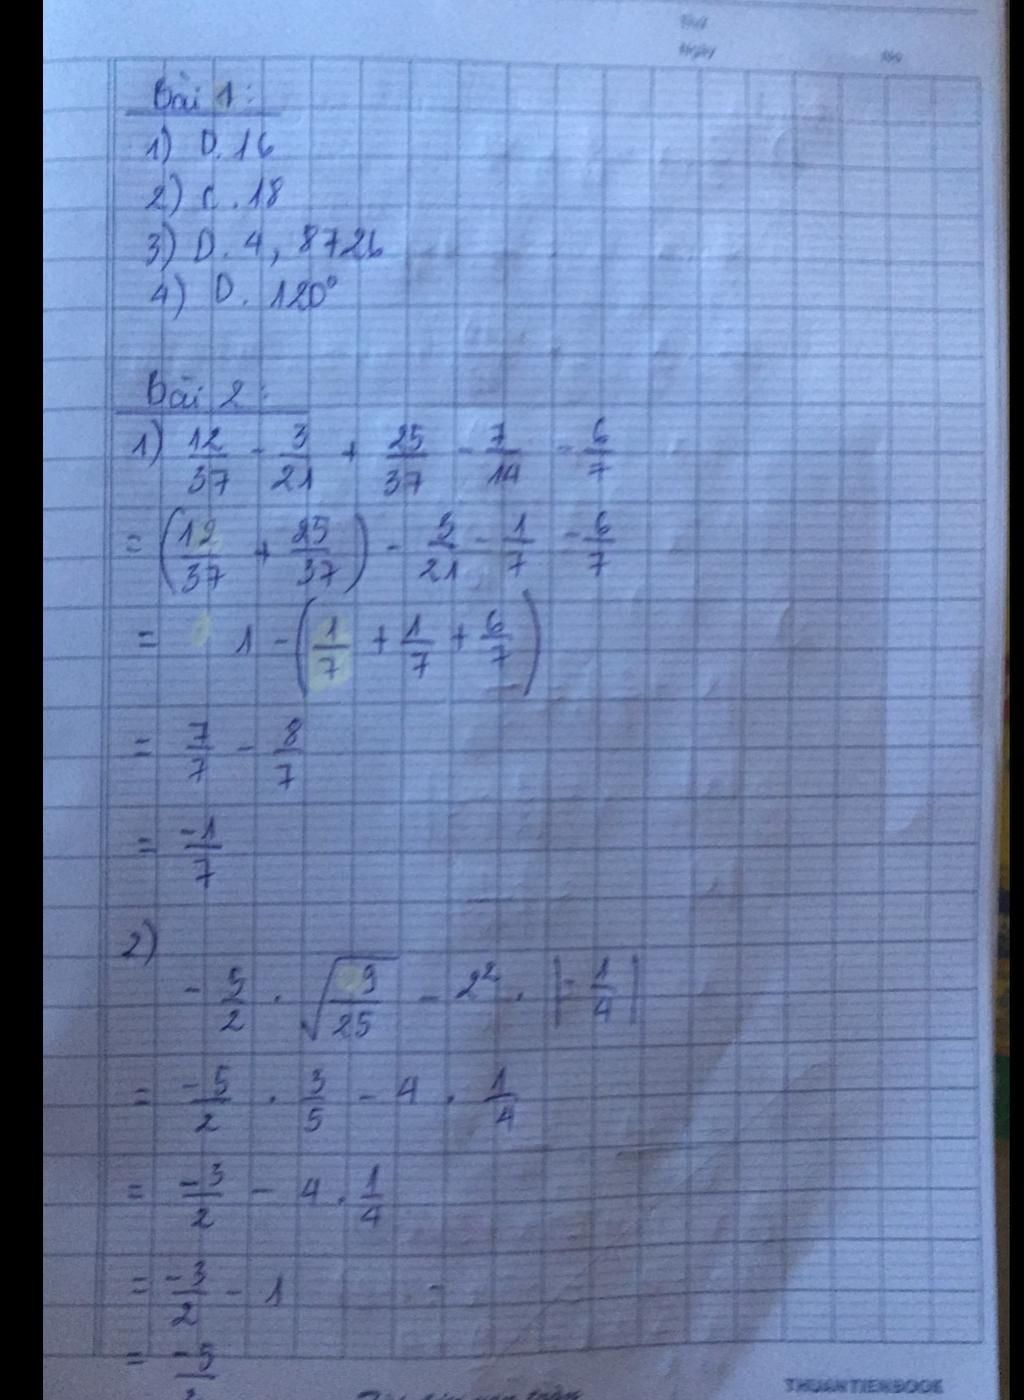 Thứ
Ngày No
Bài 1:
1) D. 16
2) C. 18
3) D. 4, 8726
4) D. 120°
Bài 2:
1) 12/37 - 3/21 + 25/37 - 7/14 - 6/7
= (12/37 + 25/37) - 3/21 - 1/7 - 6/7
= 1 - (1/7 + 1/7 + 6/7)
= 7/7 - 8/7
= -1/7
2)
- 5/2 . √(9/25) - 2² . |-1/4|
= -5/2 . 3/5 - 4 . 1/4
= -3/2 - 4 . 1/4
= -3/2 - 1
= -5/2
THUANTIENBOOK